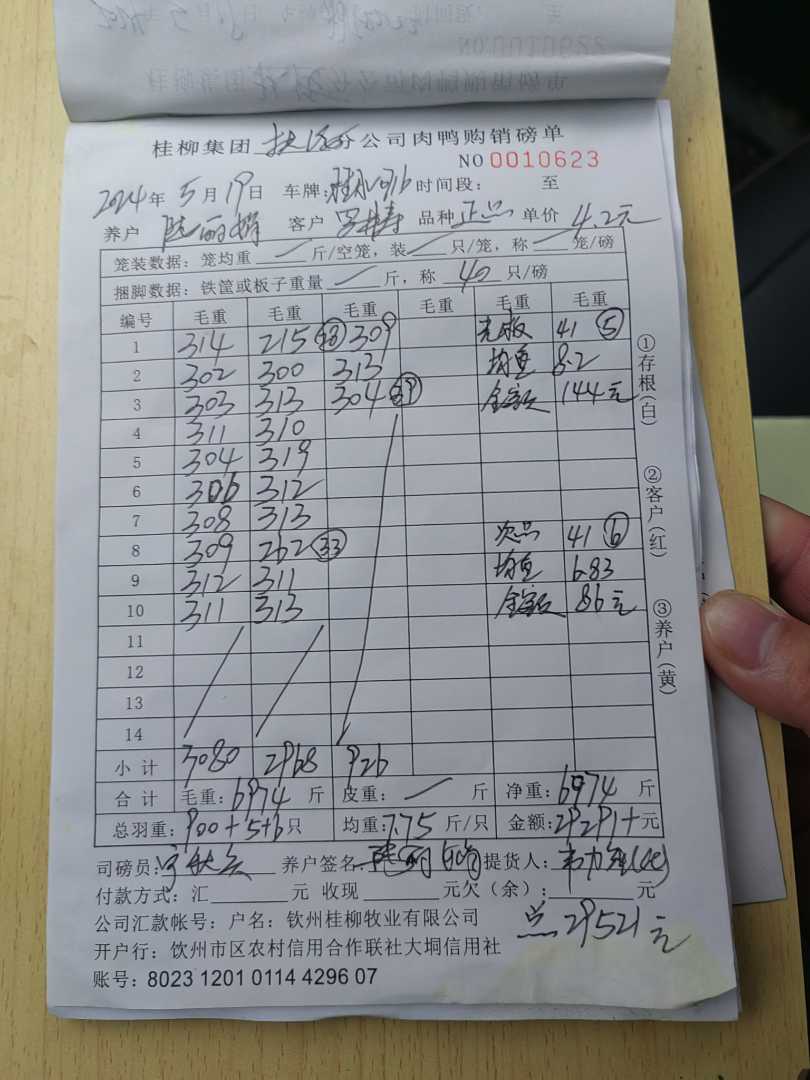 桂柳集团 分公司肉鸭购销磅单
NO 0010623
2024年5月19日 车牌: 时间段: 至
养户 陆丽娟 客户 品种 正品 单价 4.2元
笼装数据: 笼均重 / 斤/空笼, 装 / 只/笼, 称 / 笼/磅
捆脚数据: 铁筐或板子重量 / 斤, 称 40 只/磅
编号 毛重 毛重 毛重 毛重 毛重 毛重
1 314 215 28 309 光板 41 ⑤
2 302 300 313 均重 8.2
3 303 313 304 39 金额 144元
4 311 310
5 304 319
6 306 312
7 308 313
8 309 262 33 次品 41 ⑥
9 312 311 均重 6.83
10 311 313 金额 86元
11
12
13
14
小计 3080 2968 926
合计 毛重: 6974 斤 皮重: / 斤 净重: 6974 斤
总羽重: 900+5+6只 均重: 7.75 斤/只 金额: 29291+元
司磅员: 养户签名: 提货人:
付款方式: 汇 元 收现 元欠(余): 元
公司汇款帐号: 户名: 钦州桂柳牧业有限公司
总29521元
开户行: 钦州市区农村信用合作联社大垌信用社
账号: 8023 1201 0114 4296 07
①存根(白)
②客户(红)
③养户(黄)